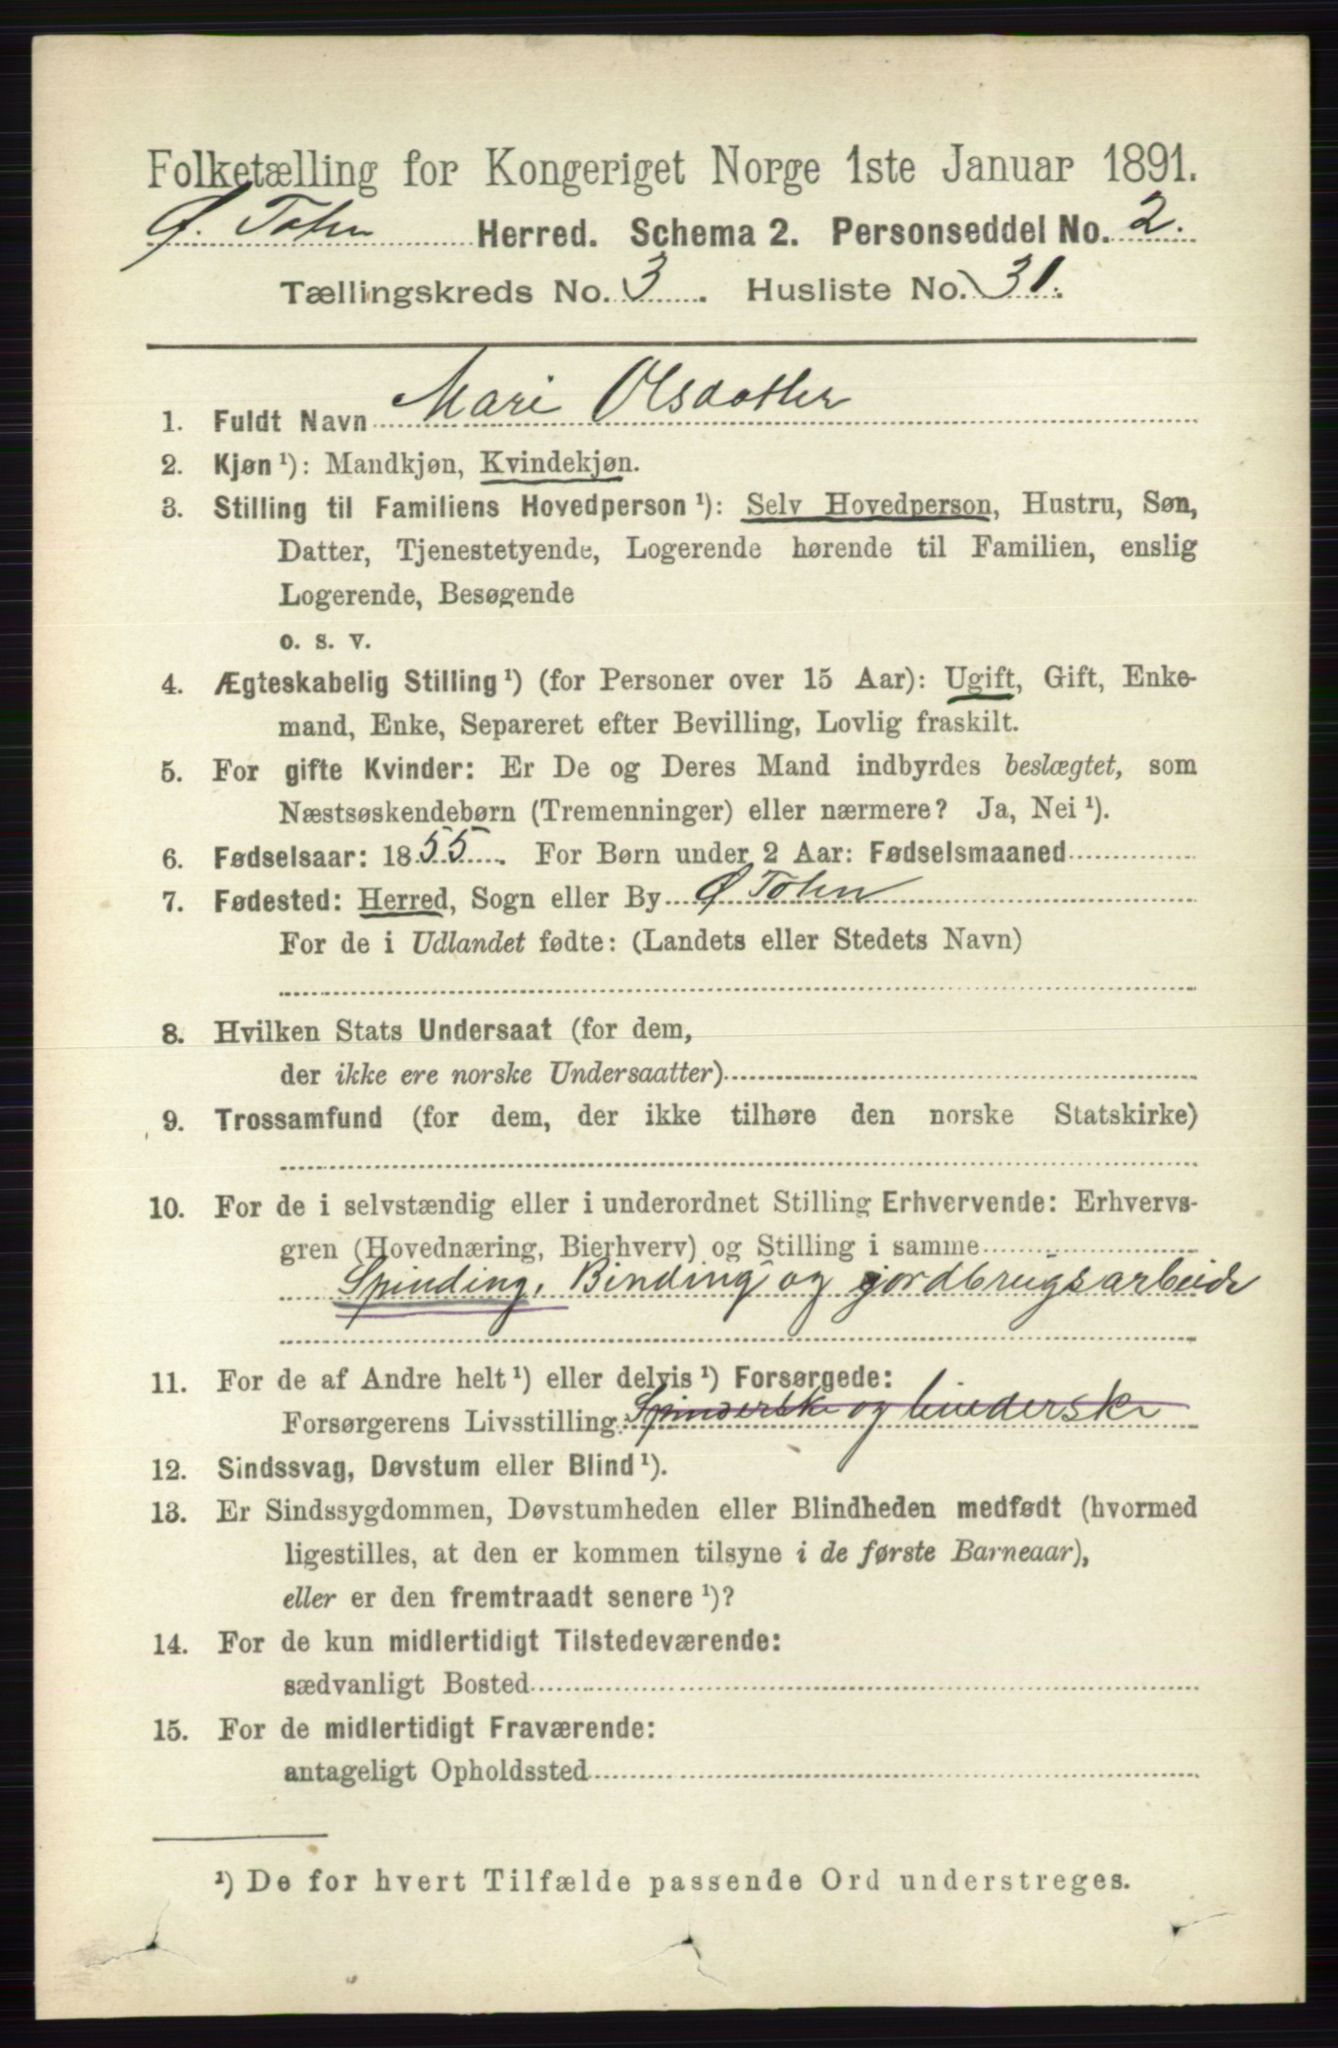 Folketælling for Kongeriget Norge 1ste Januar 1891.
Ø. Toten Herred. Schema 2. Personseddel No. 2.
Tællingskreds No. 3. Husliste No. 31.
1. Fuldt Navn Mari Olsdatter
2. Kjøn ¹): Mandkjøn, Kvindekjøn.
3. Stilling til Familiens Hovedperson ¹): Selv Hovedperson, Hustru, Søn,
Datter, Tjenestetyende, Logerende hørende til Familien, enslig
Logerende, Besøgende
o. s. v.
4. Ægteskabelig Stilling ¹) (for Personer over 15 Aar): Ugift, Gift, Enke-
mand, Enke, Separeret efter Bevilling, Lovlig fraskilt.
5. For gifte Kvinder: Er De og Deres Mand indbyrdes beslægtet, som
Næstsøskendebørn (Tremenninger) eller nærmere? Ja, Nei ¹).
6. Fødselsaar: 1855. For Børn under 2 Aar: Fødselsmaaned
7. Fødested: Herred, Sogn eller By Ø Toten
For de i Udlandet fødte: (Landets eller Stedets Navn)
8. Hvilken Stats Undersaat (for dem,
der ikke ere norske Undersaatter)
9. Trossamfund (for dem, der ikke tilhøre den norske Statskirke)
10. For de i selvstændig eller i underordnet Stilling Erhvervende: Erhvervs-
gren (Hovednæring, Bierhverv) og Stilling i samme
Spinding, Binding og jordbrugsarbeide
11. For de af Andre helt ¹) eller delvis ¹) Forsørgede:
Forsørgerens Livsstilling Spinderske og binderske
12. Sindssvag, Døvstum eller Blind ¹).
13. Er Sindssygdommen, Døvstumheden eller Blindheden medfødt (hvormed
ligestilles, at den er kommen tilsyne i de første Barneaar),
eller er den fremtraadt senere ¹)?
14. For de kun midlertidigt Tilstedeværende:
sædvanligt Bosted
15. For de midlertidigt Fraværende:
antageligt Opholdssted
¹) De for hvert Tilfælde passende Ord understreges.